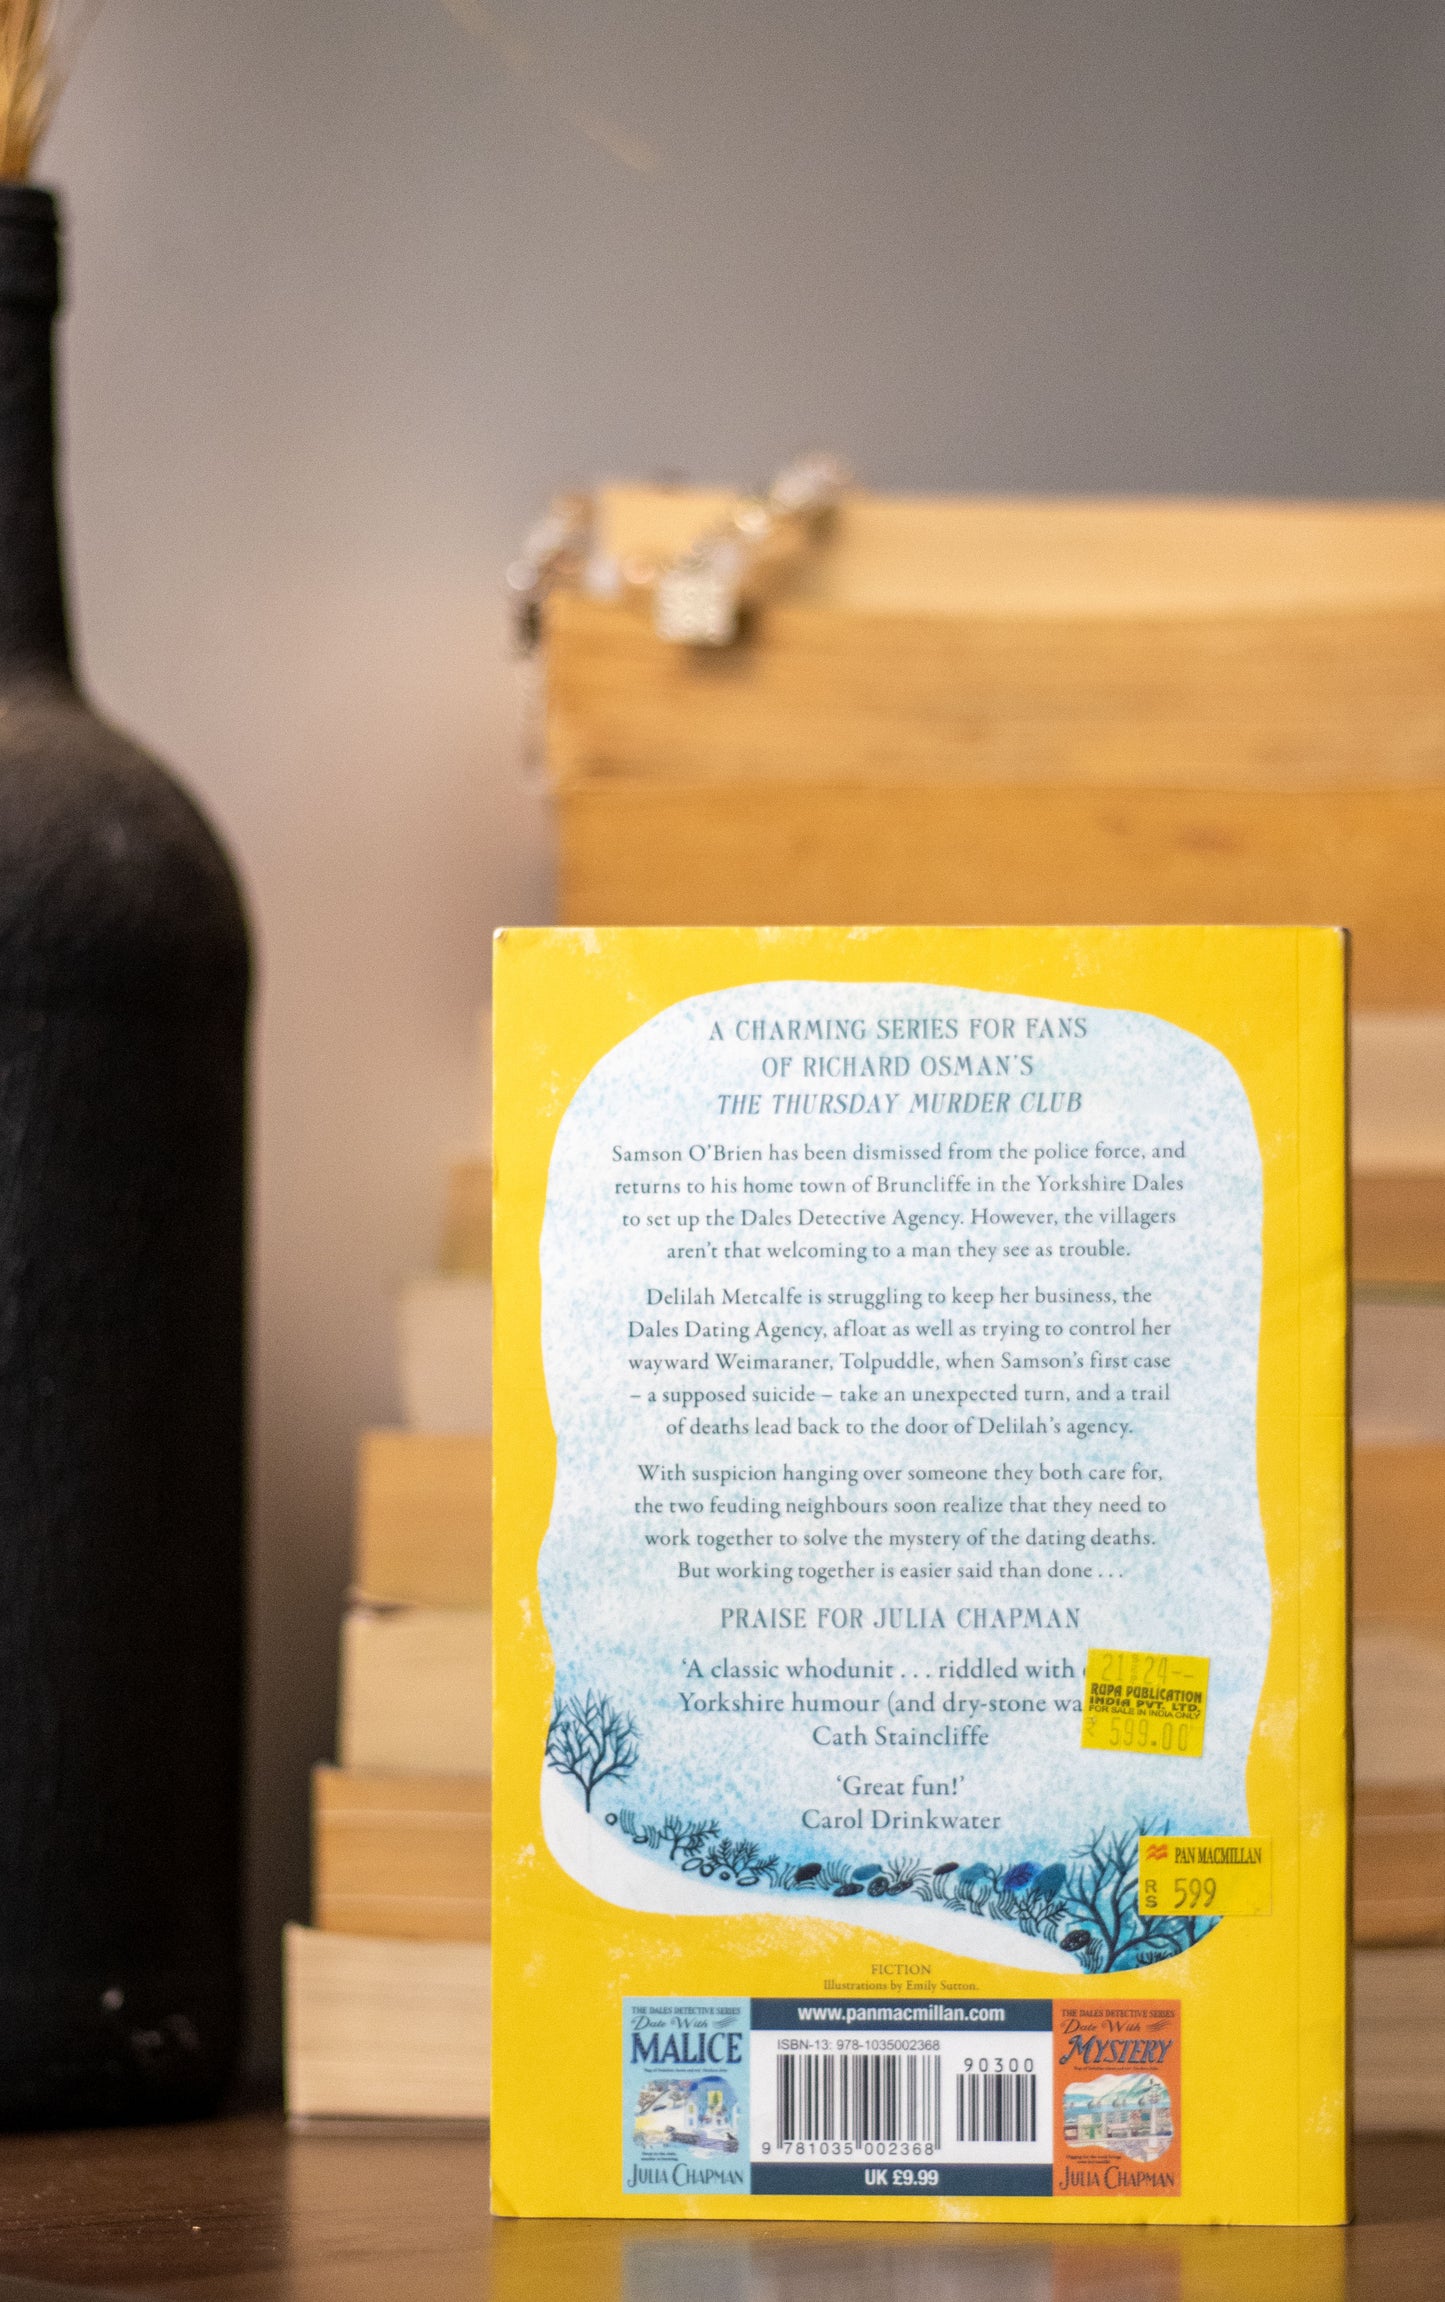 A CHARMING SERIES FOR FANS
OF RICHARD OSMAN'S
THE THURSDAY MURDER CLUB
Samson O'Brien has been dismissed from the police force, and
returns to his home town of Bruncliffe in the Yorkshire Dales
to set up the Dales Detective Agency. However, the villagers
aren't that welcoming to a man they see as trouble.
Delilah Metcalfe is struggling to keep her business, the
Dales Dating Agency, afloat as well as trying to control her
wayward Weimaraner, Tolpuddle, when Samson's first case
– a supposed suicide – take an unexpected turn, and a trail
of deaths lead back to the door of Delilah's agency.
With suspicion hanging over someone they both care for,
the two feuding neighbours soon realize that they need to
work together to solve the mystery of the dating deaths.
But working together is easier said than done . . .
PRAISE FOR JULIA CHAPMAN
'A classic whodunit . . . riddled with
Yorkshire humour (and dry-stone wa
Cath Staincliffe
'Great fun!'
Carol Drinkwater
RUPA PUBLICATION
INDIA PVT. LTD.
FOR SALE IN INDIA ONLY
599.00
PAN MACMILLAN
RS 599
FICTION
Illustrations by Emily Sutton.
THE DALES DETECTIVE SERIES
Date With
MALICE
JULIA CHAPMAN
www.panmacmillan.com
ISBN-13: 978-1035002368
90300
9 781035 002368
UK £9.99
THE DALES DETECTIVE SERIES
Date With
MYSTERY
JULIA CHAPMAN